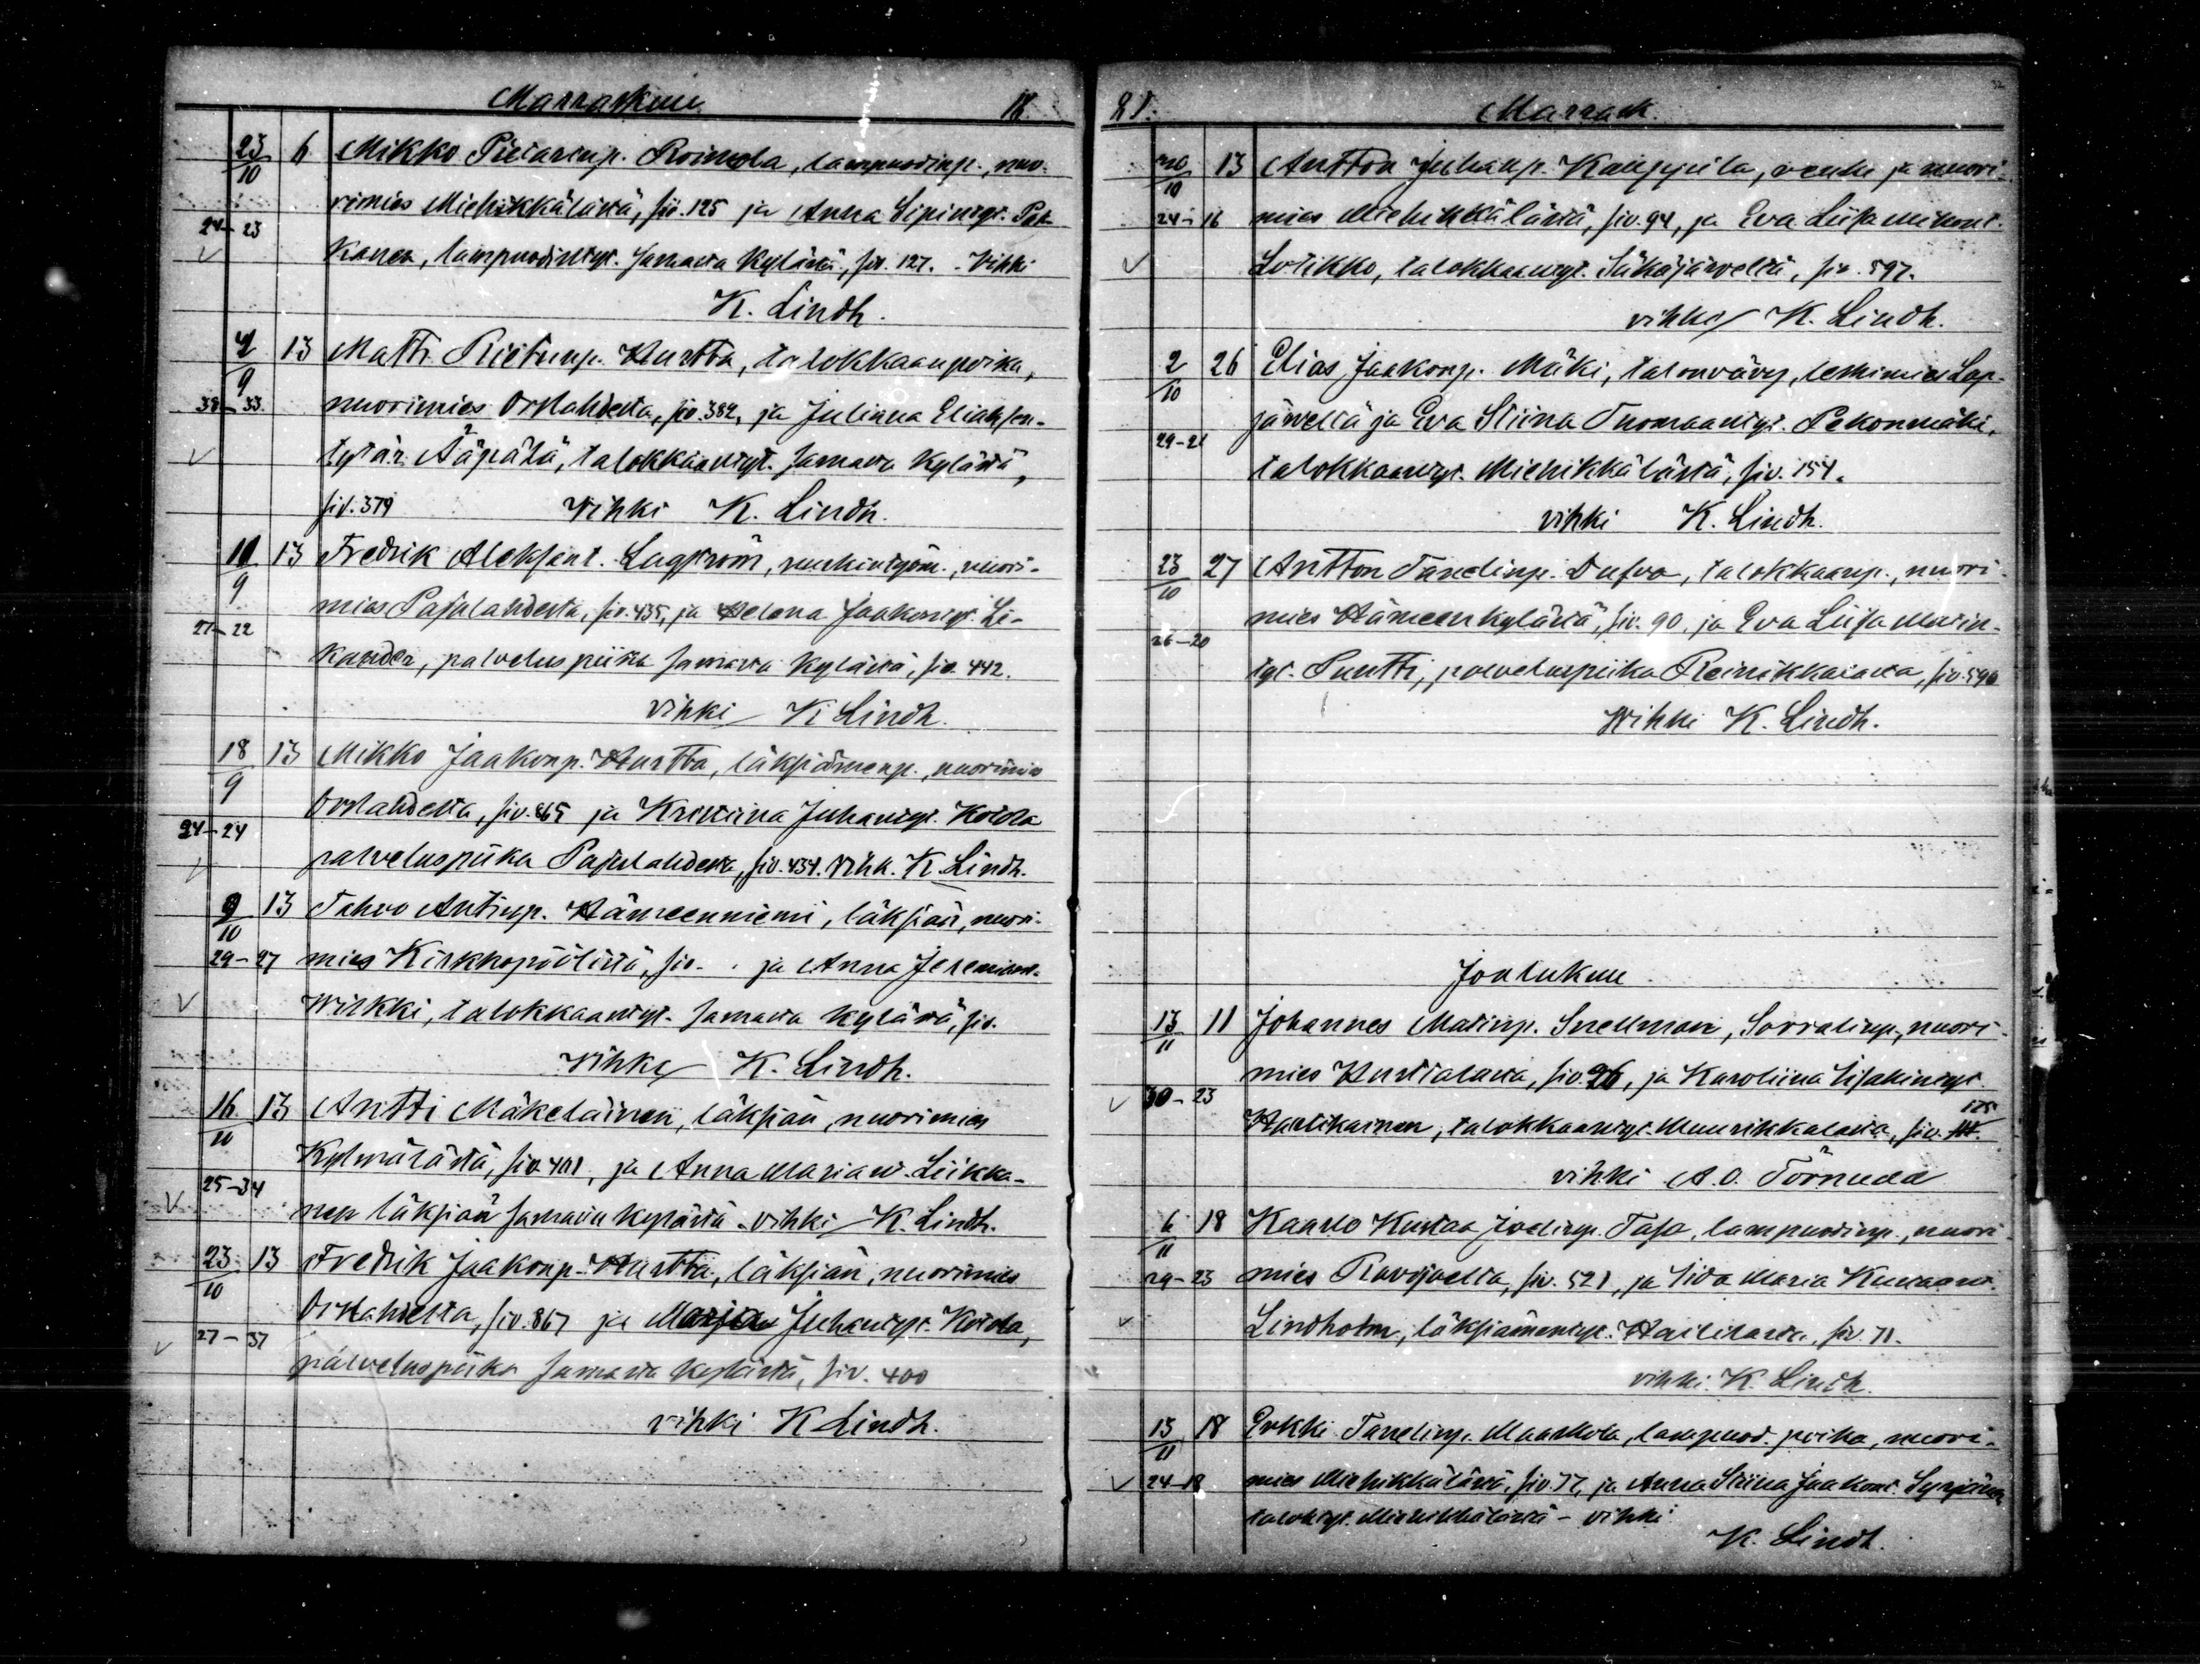 Marraskuu 18
23/10 6 Mikko Pietarinp. Roimola, lampuodinp., nuo-
rimies Miehikkälästä, siv. 125 ja Anna Sipintyt. Pak-
24-23
kanen, lampuodintyt. samasta kylästä, siv. 127. Vihki
K. Lindh.
4/9 13 Matti Pietunp. Hurtta, talokkaanpoika,
38-33 nuorimies Orslahdesta, siv. 382, ja Juliana Eliaksen-
tytär Ääpälä, talokkaantyt. samasta kylästä,
siv. 379 Vihki K. Lindh.
11/9 13 Fredrik Aleksant. Lagström, nuori-
mies Pajulahdesta, siv. 435, ja Helena Jaakontyt. Li-
27-22
kander, palveluspiika samasta kylästä, siv. 442.
vihki K Lindh.
18/9 13 Mikko Jaakonp. Hurtta, läksiämenp., nuorimies
Orslahdesta, siv. 865 ja Kristiina Juhantyt. Koiola
24-24
palveluspiika Pajulahdesta, siv. 434. Vihk. K. Lindh.
9/10 13 Tahvo Antinp. Hämeenniemi, läksiäin, nuori-
29-27 mies Kirkkopöölistä, siv. . ja Anna Jeremiant.
Wirkki, talokkaantyt. samasta kylästä, siv.
Vihki K. Lindh.
16/10 13 Antti Mäkeläinen, läksiäin, nuorimies
Kylmälästä, siv. 401, ja Anna Maria w. Liikka-
25-34
nen läksiäin samasta kylästä. vihki K. Lindh.
23/10 13 Fredrik Jaakonp. Hurtta, läksiäin, nuorimies
Orslahdesta, siv. 867 ja Maria Juhantyt. Koiola,
27-37
palveluspiika samasta kylästä, siv. 400
vihki K Lindh.
81. Marrask.
30/10 13 Antton Juhanp. Kauppila, renki ja nuori-
24-16 mies Miehikkälästä, siv. 94, ja Eva Liisa Mikont.
Lotikko, talokkaantyt. Säkäjärveltä, siv. 597.
vihki K. Lindh.
2/10 26 Elias Jaakonp. Mäki, talonvävy, leskimies Lap-
järveltä ja Eva Stiina Tuomaantyt. Pekonmäki,
29-21
talokkaantyt. Miehikkälästä, siv. 154.
vihki K. Lindh.
23/10 27 Antton Tanelinp. Dufva, talokkaanp., nuori-
mies Hämeenkylästä, siv. 90, ja Eva Liisa Matin-
26-20
tyt. Suutti, palveluspiika Reinikkalasta, siv. 590
Vihki K. Lindh.
Joulukuu
13/11 11 Johannes Matinp. Snellman, Sorvalinp., nuori-
mies Hurttalasta, siv. 26, ja Karoliina Iisakintyt
30-23
Haalikainen, talokkaantyt. Muurikkalasta, siv. 175
vihki A. O. Törnudd
6/11 18 Kaarlo Kustaa Joelinp. Tasa, lampuodinp., nuori-
29-23 mies Ravijoelta, siv. 521, ja Iida Maria Kustaant.
Lindholm, läksiämentyt. Haililasta, siv. 71.
vihki K. Lindh.
13/11 18 Erkki Tanelinp. Maaskola, lampuod. poika, nuori-
24-18 mies Miehikkälästä, siv. 77, ja Anna Stiina Jaakont.
taloktyt. Miehikkälästä - vihki
K. Lindh.